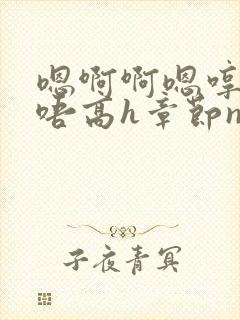 嗯啊啊嗯哼
唔高h章节n
子夜青冥